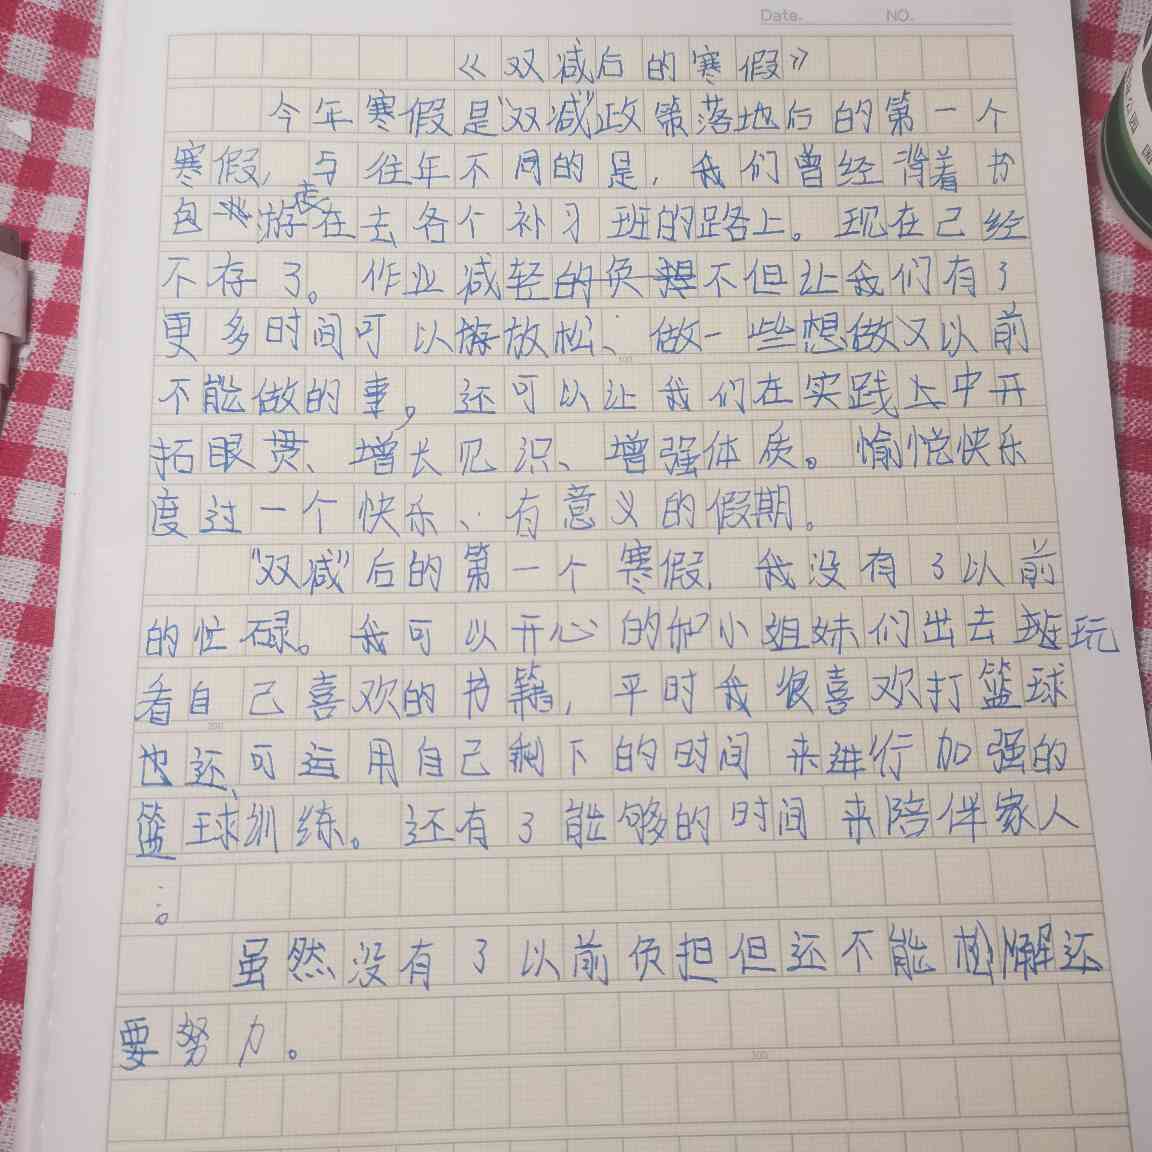 Date. NO.
《双减后的寒假》
今年寒假是“双减”政策落地后的第一个
寒假,与往年不同的是,我们曾经背着书
包游走在去各个补习班的路上。现在已经
不存了。作业减轻的负担不但让我们有了
更多时间可以放松、做一些想做又以前
不能做的事,还可以让我们在实践中开
拓眼贯、增长见识、增强体质。愉悦快乐
度过一个快乐、有意义的假期。
“双减”后的第一个寒假,我没有了以前
的忙碌。我可以开心的和小姐妹们出去玩
看自己喜欢的书籍,平时我很喜欢打篮球
也还可运用自己剩下的时间来进行加强的
篮球训练。还有了能够的时间来陪伴家人
。
虽然没有了以前负担但还不能松懈还
要努力。
100
200
300